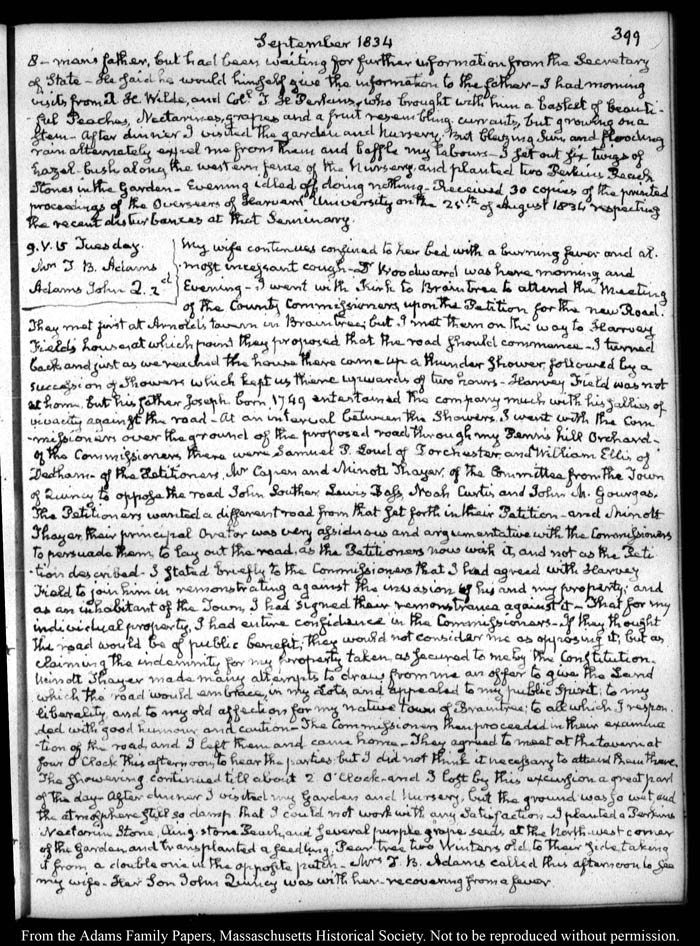 September 1834
399
8 - man's father, but had been waiting for further information from the Secretary
of State - He said he would himself give the information to the father - I had morning
visits from R. H. Wilde, and Coll. T. H. Perkins, who brought with him a basket of beauti-
-ful Peaches, Nectarines, grapes and a fruit resembling currants, but growing on a
stem - After dinner I visited the garden and Nursery, But blazing Sun, and flooding
rain alternately expel me from them and baffle my labours - I set out six twigs of
hazel-bush along the western fence of the Nursery and planted two Perkins Peach
Stones in the Garden - Evening idled off doing nothing - Received 30 copies of the printed
proceedings of the Overseers of Harvard University on the 25th of August 1834 respecting
the recent disturbances at that Seminary.
9. V. 15 Tuesday.
Mrs T. B. Adams
Adams John Q. 2d
My wife continues confined to her bed with a burning fever and al-
-most incessant cough - Dr Woodward was here morning and
Evening - I went with Kirk to Braintree to attend the Meeting
of the County Commissioners, upon the Petition for the new Road.
They met first at Arnold's tavern in Braintree, but I met them on the way to Harvey
Field's house, at which point they proposed that the road should commence - I turned
back and just as we reached the house there came up a thunder shower, followed by a
succession of showers which kept us there upwards of two hours - Harvey Field was not
at home, but his father Joseph born 1749 entertained the company much with his sallies of
vivacity against the road - At an interval between the showers, I went with the Com-
-missioners over the ground of the proposed road through my Penn's hill Orchard -
of the Commissioners there were Samuel P. Loud of Dorchester, and William Ellis of
Dedham - of the Petitioners, Mr Capen and Minott Thayer, of the Committee from the Town
of Quincy to oppose the road John Souther, Lewis Bass, Noah Curtis and John M. Gourgas.
The Petitioners wanted a different road from that set forth in their Petition - and Minott
Thayer their principal Orator was very assiduous and argumentative with the Commissioners
to persuade them, to lay out the road, as the Petitioners now wish it, and not as the Peti-
-tion described - I stated briefly to the Commissioners that I had agreed with Harvey
Field to join him in remonstrating against the invasion of his and my property; and
as an inhabitant of the Town, I had signed their remonstrance against it - That for my
individual property, I had entire confidence in the Commissioners - If they thought
the road would be of public benefit, they would not consider me as opposing it, but as
claiming the indemnity for my property taken, as secured to me by the Constitution.
Minott Thayer made many attempts to draw from me an offer to give the Land
which the road would embrace, in my Lots, and appealed to my public Spirit; to my
liberality, and to my old affections for my native town of Braintree; to all which I respon-
ded with good humour and caution - The Commissioners then proceeded in their examina-
-tion of the road, and I left them and came home - They agreed to meet at the tavern at
four O'Clock this afternoon, to hear the parties: but I did not think it necessary to attend them there.
The showering continued till about 2 O'Clock - and I lost by this excursion a great part
of the day. After dinner I visited my Garden and Nursery, but the ground was so wet, and
the atmosphere still so damp that I could not work with any satisfaction - I planted a Perkins
Nectarine Stone, Cling-stone Peach, and several purple grape seeds at the North-west corner
of the Garden and transplanted a seedling Pear tree two Winters old to their side taking
it from a double one in the opposite patch - Mrs T. B. Adams called this afternoon to see
my wife - Her Son John Quincy was with her - recovering from a fever
From the Adams Family Papers, Massachusetts Historical Society. Not to be reproduced without permission.